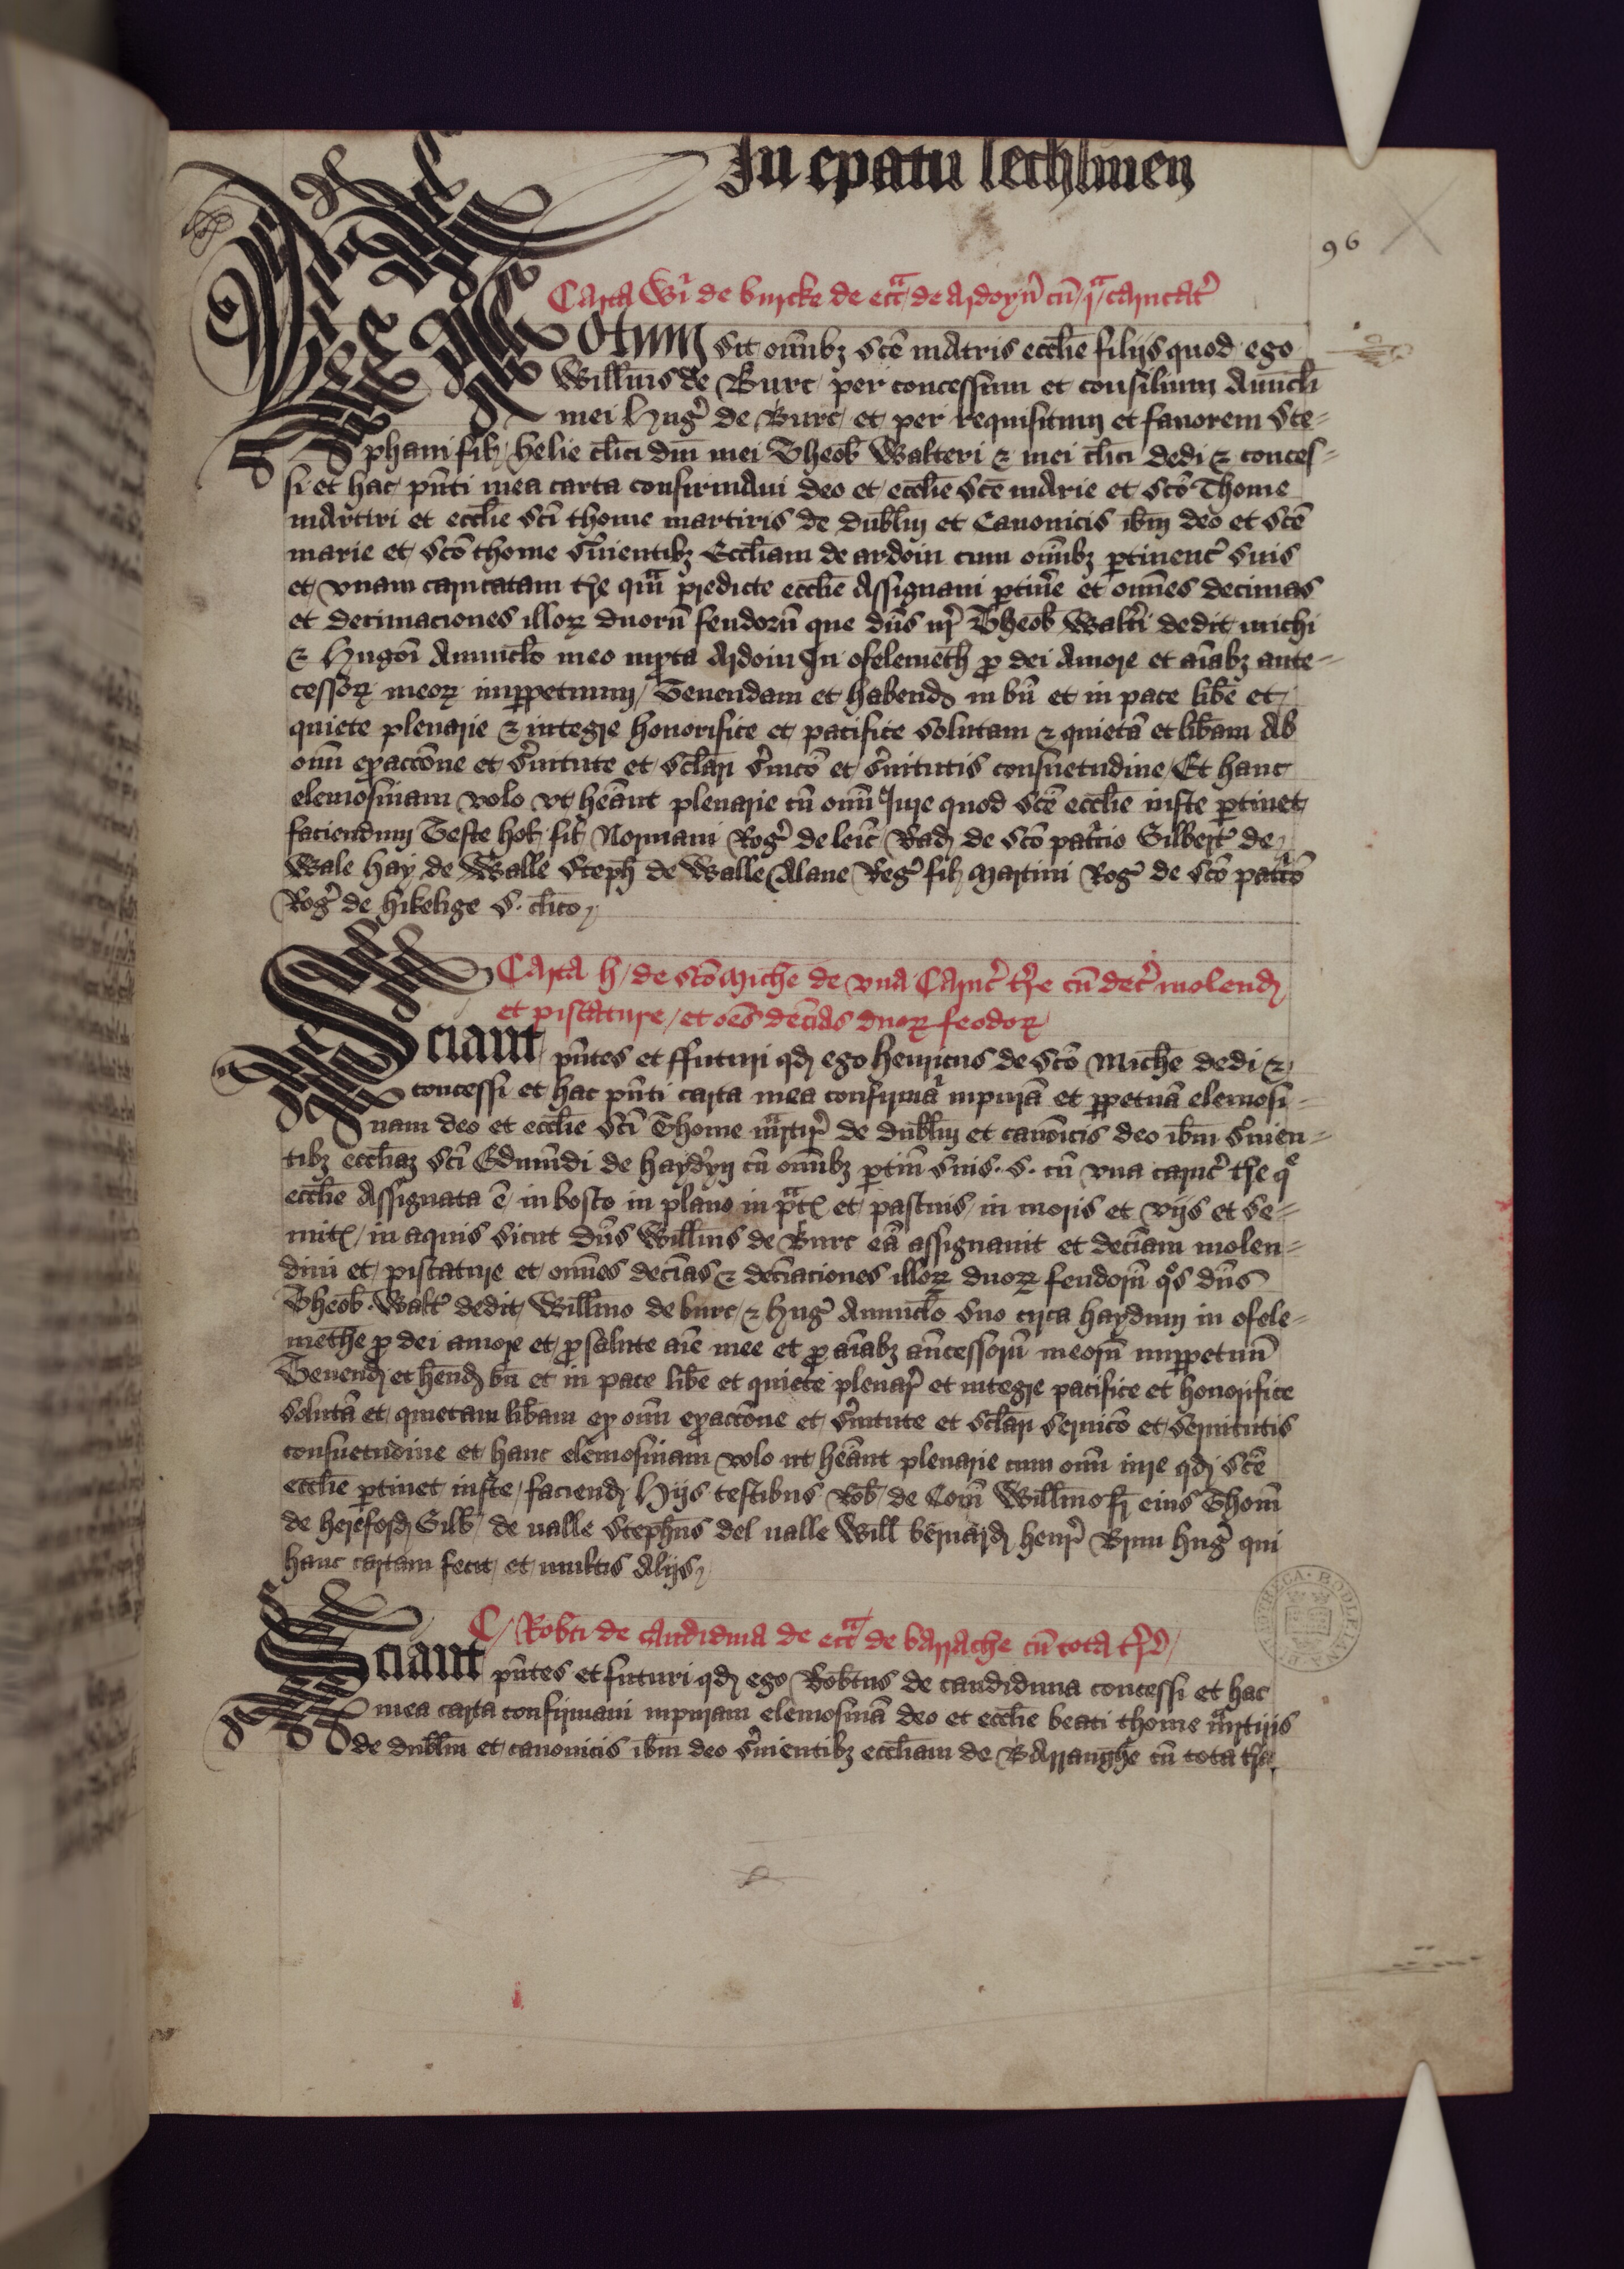 In epatu lechlinen
96
Carta Wi de burcke de ecca de Ardoyn cu j carucat
Notum sit omibz sce matris ecclie filijs quod ego
Willms de Burc per concessum et consilium Auuncli
mei Hug de Burc et per requisitum et fauorem Ste=
phani fil helie clici dni mei Theob Walteri & mei clici dedi & conces=
si et hac pnti mea carta confirmaui deo et ecclie sce marie et sco Thome
martiri et ecclie sci thome martiris de dublin et Canonicis ibm deo et sce
marie et sco thome suientibz Eccliam de ardoin cum omibz ptinenc suis
et vnam carucatam tre qua predicte ecclie Assignaui ptine et omes decimas
et decimaciones illor duoru feudoru que dns nr Theob Walti dedit michi
& Hugoi Auuuclo meo iuxta Ardoin In ofelemeth p dei Amore et aiabz ante=
cessor meor imppetuum Tenendam et habend in bn et in pace libe et
quiete plenarie & integre honorifice et pacifice solutam & quieta et libam Ab
omi exaccone et suitute et sclari suico et suitutis consuetudine Et hanc
elemosinam volo vt heant plenarie cu omi Iure quod sce ecclie iuste ptinet
faciendum Teste hob fil Normani Rog de leic Rad de sco patcio Gilbert de
Wale hay de Walle Steph de Walle Alane Reg fil Martini Rog de sco patco
Rog de hikelige S. clico
Carta h de sco Miche de vna Caruc tre cu dec molend
et pistature et oes decias duor feodor
Sciant pntes et ffuturi qd ego henricus de sco Miche dedi &
concessi et hac pnti carta mea confirma inpura et ppetua elemosi=
nam deo et ecclie sci Thome martir de dublin et canoicis deo ibm suien=
tibz eccliaz sci Edmundi de haydyn cu omibz ptin suis. s. cu vna caruc tre q
ecclie Assignata e in bosco in plano in prat et pastuis in moris et vijs et se=
mit in aquis sicut dns Willms de Burc ea assignauit et deciam molen=
dini et pistature et omes decias & deciaciones illor duor feudoru qos dns
Theob. Walt dedit Willmo de burc & hug Auuuclo suo circa haydum in ofele=
methe p dei amore et p salute aie mee et p aiabz ancessoru meoru imppetuu
Tenend et hend bn et in pace libe et quiete plenar et integre pacifice et honorifice
soluta et quietam libam ex omi exaccone et suitute et sclari seruico et seruitutis
consuetudine et hanc elemosinam volo ut heant plenarie cum omi iure qd sce
ecclie ptinet iuste faciend Hijs testibus Rob de Corn Willmo fr eius Thom
de hereford Gilb de ualle Stephns del ualle Will bernard henr Brun hug qui
hanc cartam fecit et multis Alijs
C Robti de candidina de ecca de barrache cu tota tra
Sciant pntes et futuri qd ego Robtus de candiduna concessi et hac
mea carta confirmaui inpuram elemosina deo et ecclie beati thome martiris
de dublin et canonicis ibm deo suientibz eccliam de Barranghe cu tota tra